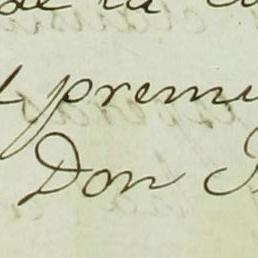 de la
premi
Don